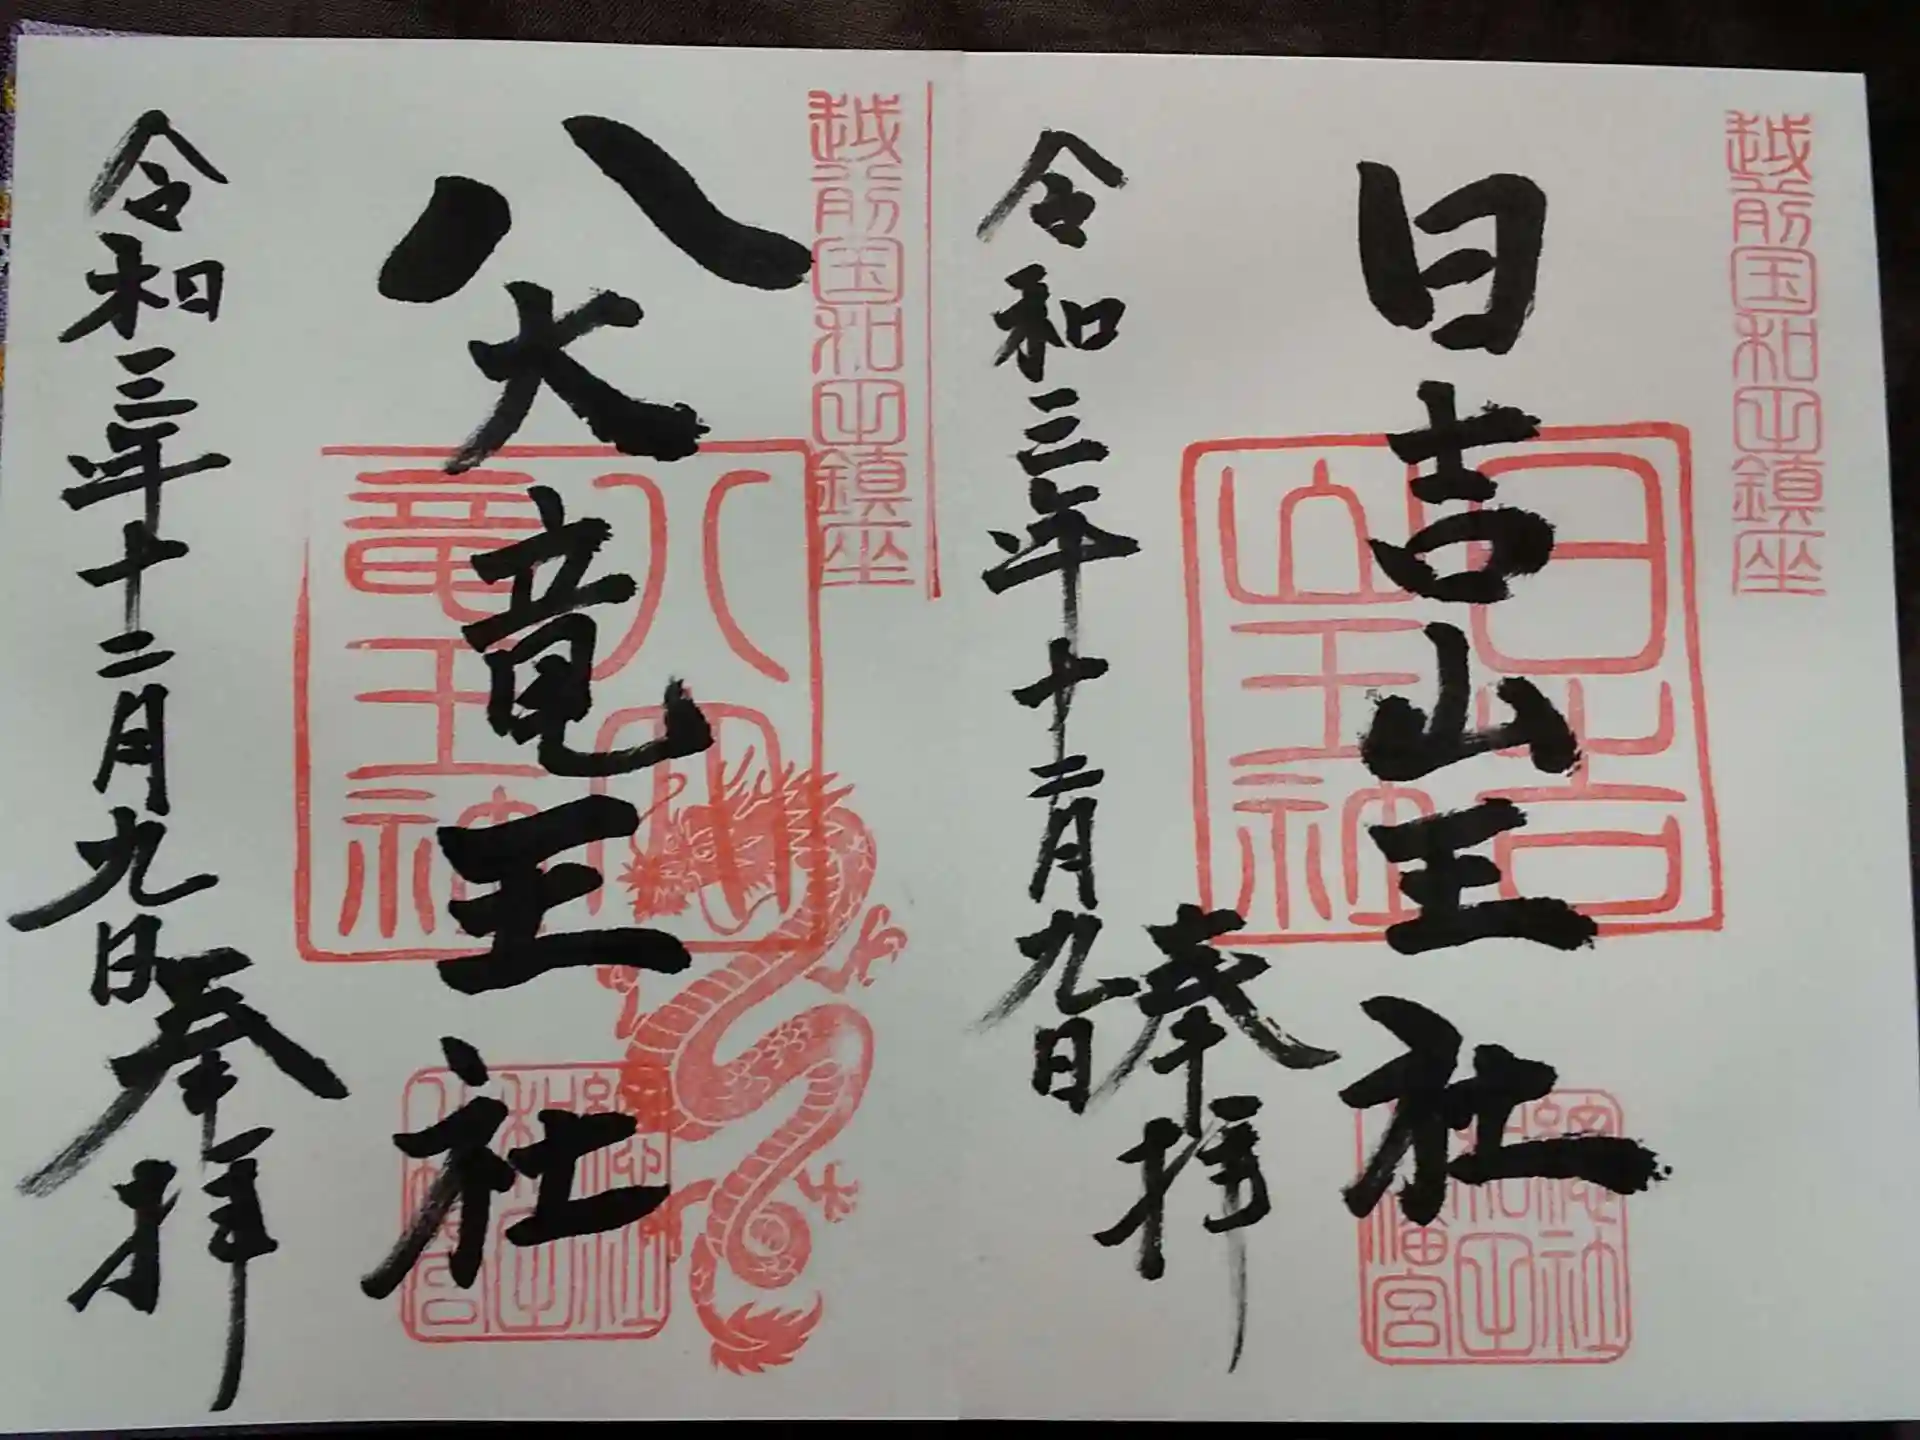 越前国和田鎮座
日吉山王社
日吉
山王社
總社
和田
八幡宮
奉拝
令和三年十二月九日
越前国和田鎮座
八大竜王社
八大
竜王社
總社
和田
八幡宮
奉拝
令和三年十二月九日